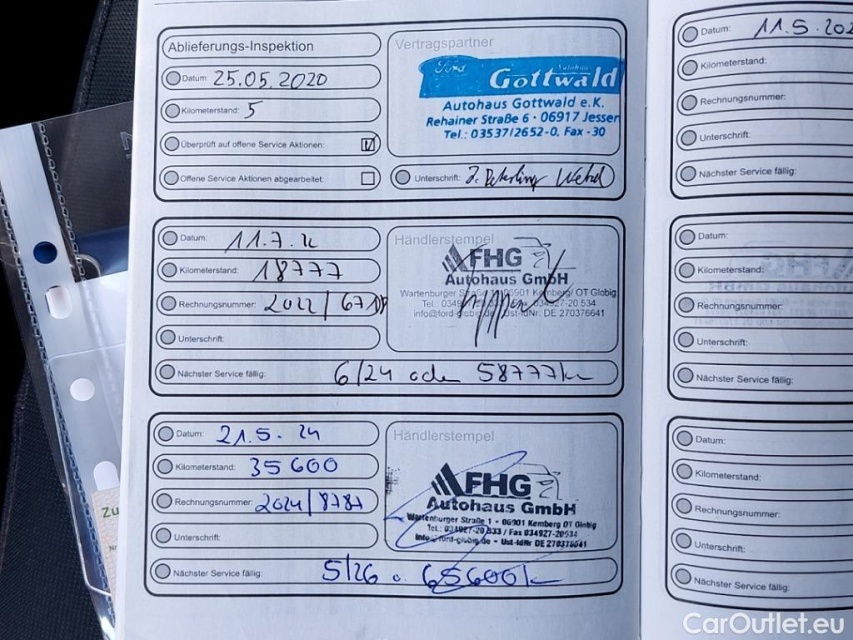 Ablieferungs-Inspektion
Datum: 25.05.2020
Kilometerstand: 5
Überprüft auf offene Service Aktionen:
Offene Service Aktionen abgearbeitet:
Vertragspartner
Ford Autohaus
Gottwald
Autohaus Gottwald e.K.
Rehainer Straße 6 · 06917 Jessen
Tel.: 03537/2652-0, Fax -30
Unterschrift:
Datum:
Kilometerstand: 18777
Rechnungsnummer:
Unterschrift:
Nächster Service fällig: 6/24 oder 58777km
Händlerstempel
FHG
Autohaus GmbH
Wartenburger Straße 1 · 06901 Kemberg OT Globig
Datum: 21.5.24
Kilometerstand: 35600
Rechnungsnummer: 2024/8787
Unterschrift:
Nächster Service fällig: 5/26 o. 65600km
Händlerstempel
FHG
Autohaus GmbH
Wartenburger Straße 1 · 06901 Kemberg OT Globig
Tel.: 034927-20 333 / Fax 034927-20534
info@ford-globig.de · Ust-IdNr DE 270376641
Datum: 11.5.202
Kilometerstand:
Rechnungsnummer:
Unterschrift:
Nächster Service fällig:
Datum:
Kilometerstand:
Rechnungsnummer:
Unterschrift:
Nächster Service fällig:
Datum:
Kilometerstand:
Rechnungsnummer:
Unterschrift:
Nächster Service fällig:
Zu
CarOutlet.eu